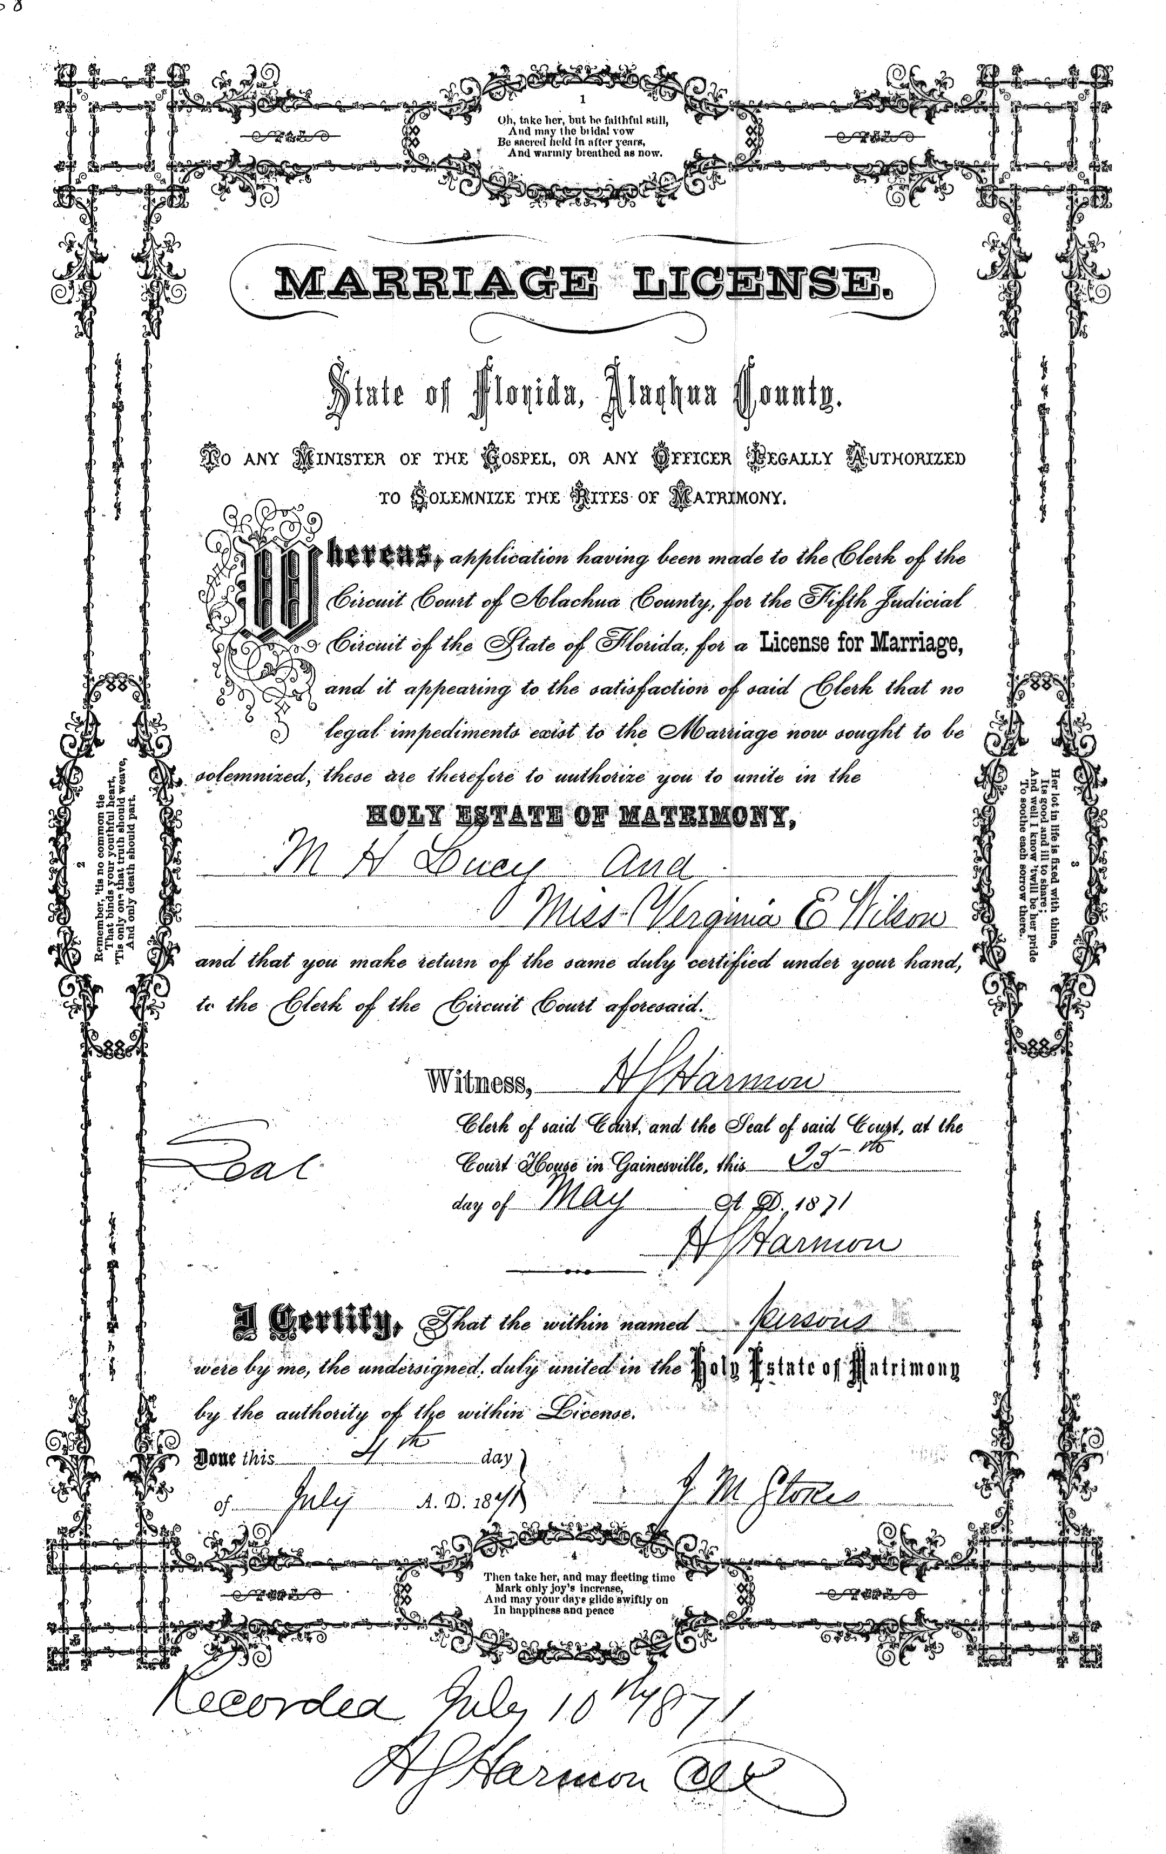 1
Oh, take her, but be faithful still,
And may the bidal vow
Be sacred held in after years,
And warmly breathed as now.
MARRIAGE LICENSE.
State of Florida, Alachua County.
TO ANY MINISTER OF THE GOSPEL, OR ANY OFFICER LEGALLY AUTHORIZED
TO SOLEMNIZE THE RITES OF MATRIMONY.
Whereas, application having been made to the Clerk of the
Circuit Court of Alachua County, for the Fifth Judicial
Circuit of the State of Florida, for a License for Marriage,
and it appearing to the satisfaction of said Clerk that no
legal impediments exist to the Marriage now sought to be
solemnized, these are therefore to authorize you to unite in the
HOLY ESTATE OF MATRIMONY,
M H Lucy And
Miss Verginia E Wilson
and that you make return of the same duly certified under your hand,
to the Clerk of the Circuit Court aforesaid.
Witness, H S Harmon
Clerk of said Court, and the Seal of said Court, at the
Court House in Gainesville, this 25th
day of May A. D. 1871
H S Harmon
Seal
I Certify, That the within named persons
were by me, the undersigned, duly united in the Holy Estate of Matrimony
by the authority of the within License.
Done this 4th day
of July A. D. 1871
J M Stokes
2
Remember, 'tis no common tie
That binds your youthful heart,
'Tis only one that truth should weave,
And only death should part.
3
Her lot in life is fixed with thine,
Its good and ill to share;
And well I know 'twill be her pride
To soothe each sorrow there.
4
Then take her, and may fleeting time
Mark only joy's increase,
And may your days glide swiftly on
In happiness and peace
Recorded July 10th 1871
H S Harmon Clk